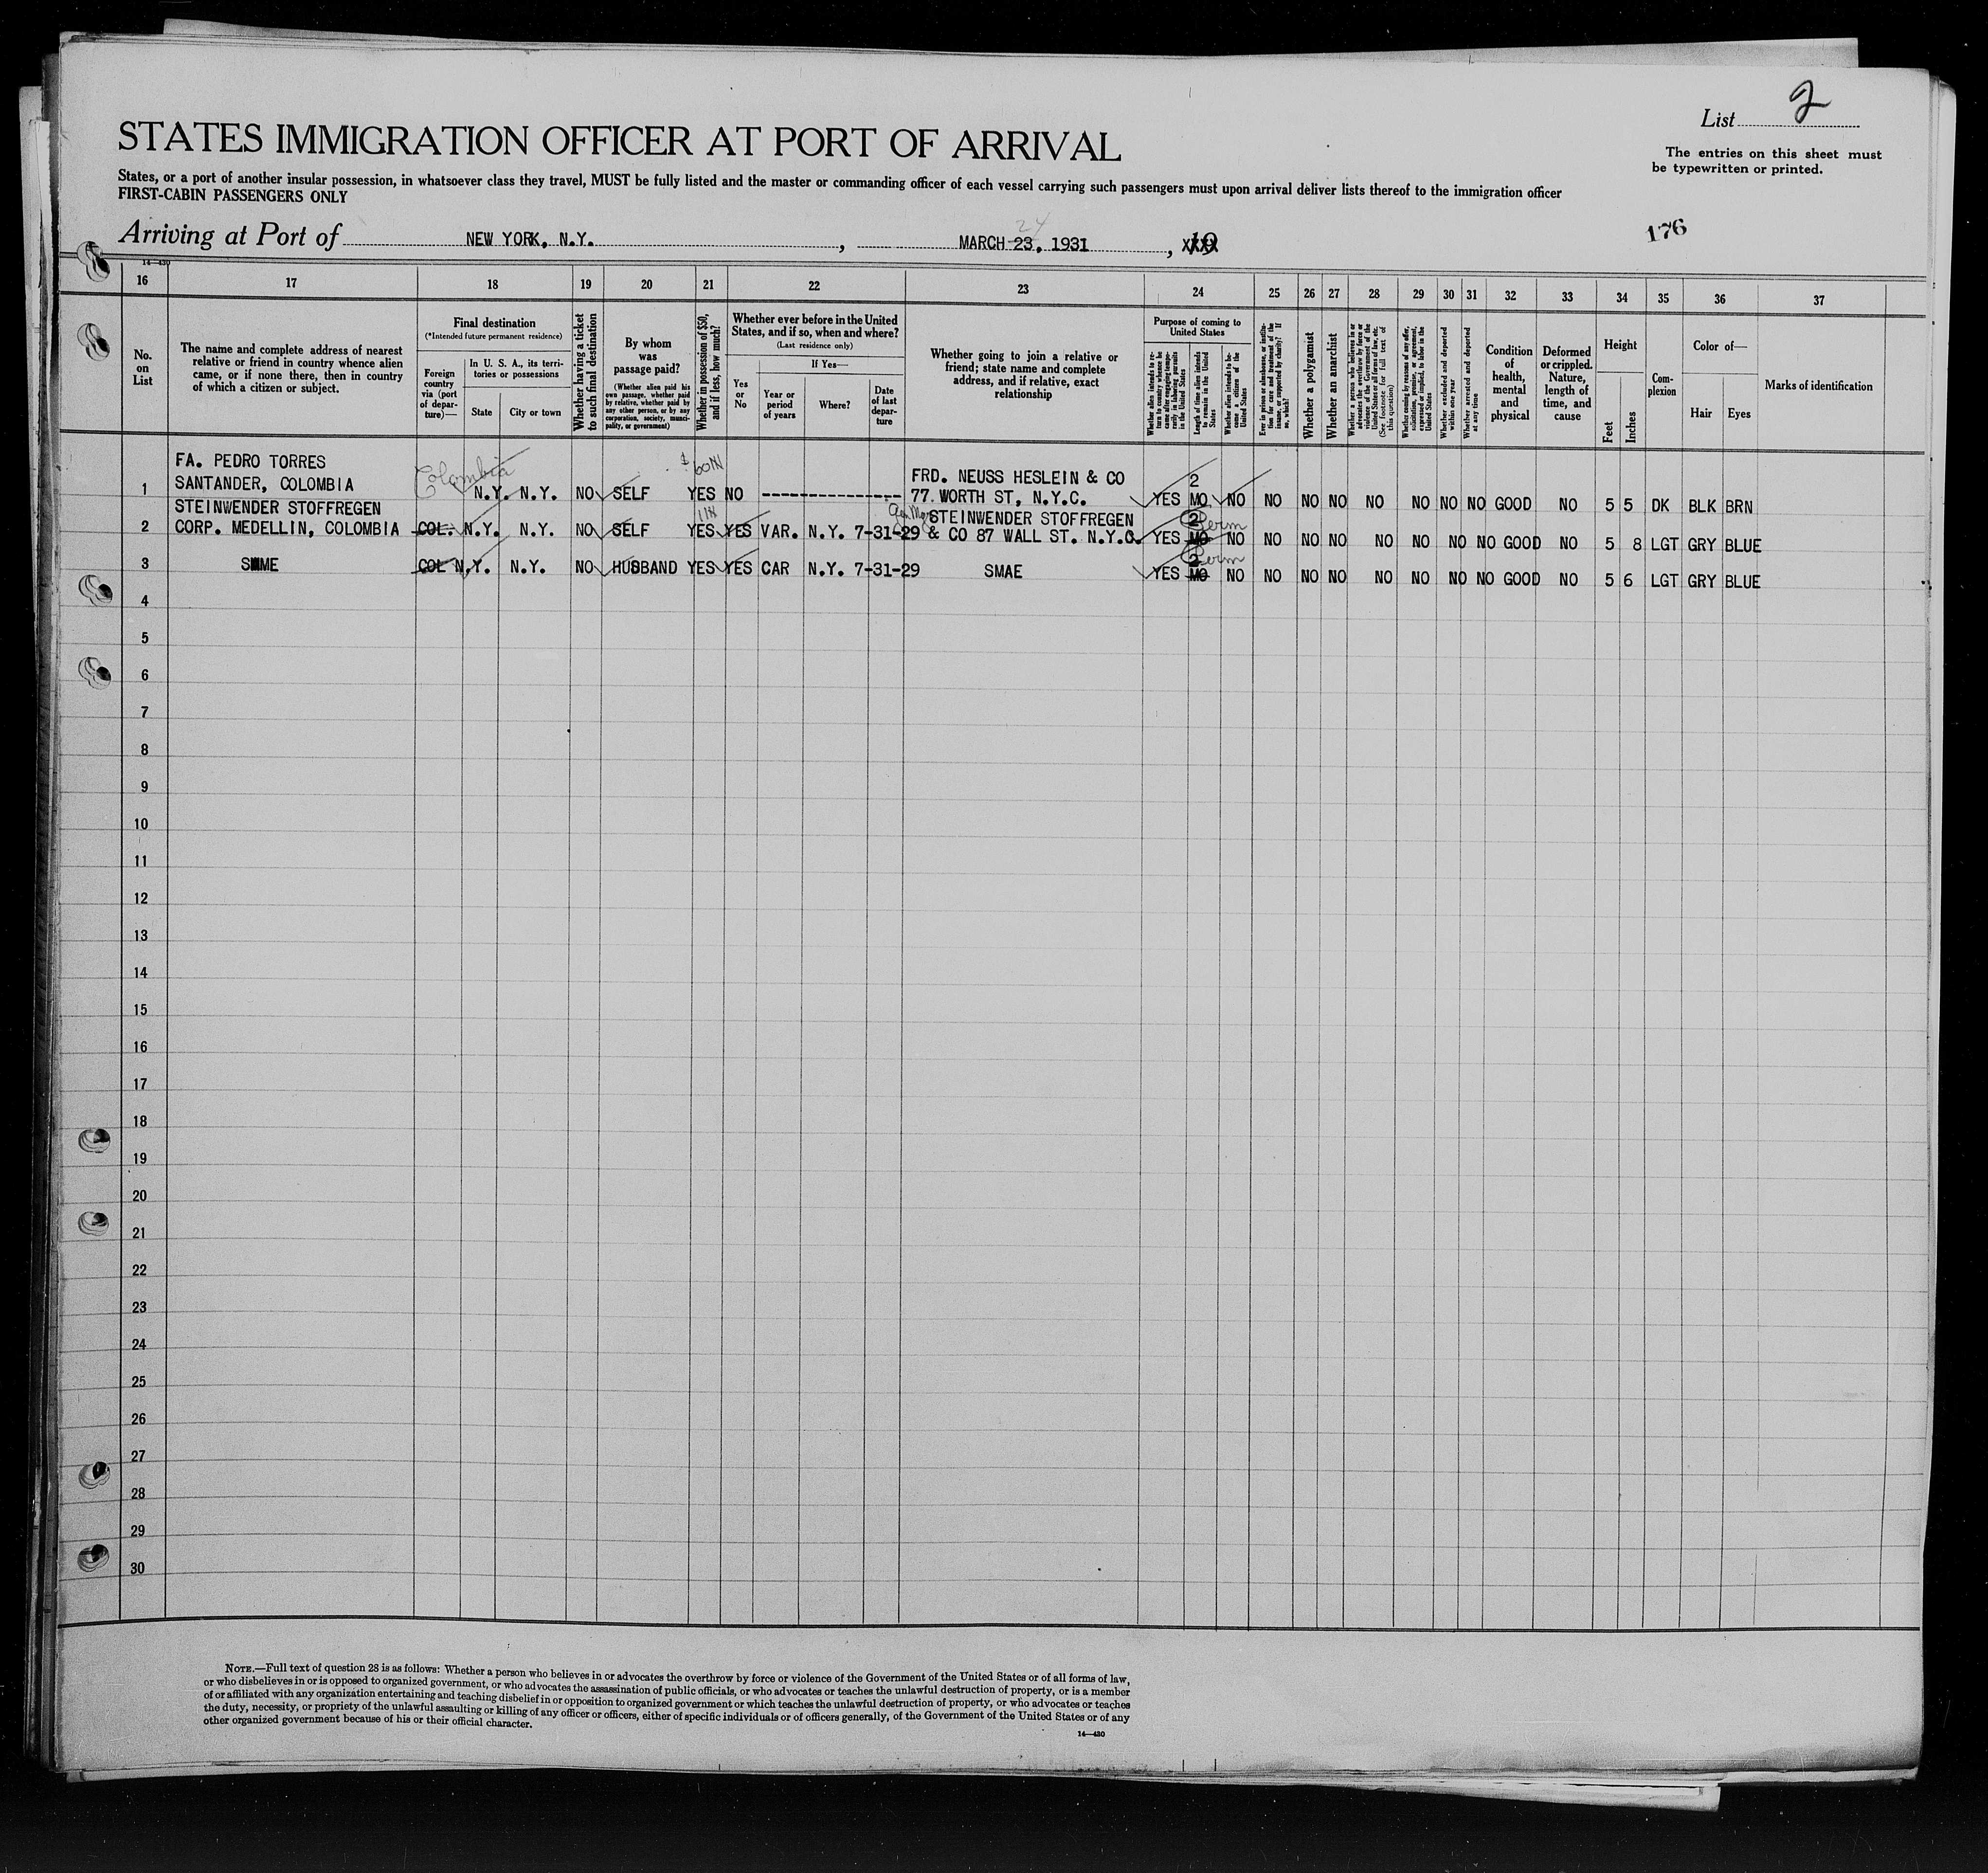 List 2
STATES IMMIGRATION OFFICER AT PORT OF ARRIVAL
The entries on this sheet must
be typewritten or printed.
States, or a port of another insular possession, in whatsoever class they travel, MUST be fully listed and the master or commanding officer of each vessel carrying such passengers must upon arrival deliver lists thereof to the immigration officer
FIRST-CABIN PASSENGERS ONLY
24
176
Arriving at Port of NEW YORK, N.Y. , MARCH 23, 1931 , 19
14—430
16 17 18 19 20 21 22 23 24 25 26 27 28 29 30 31 32 33 34 35 36 37
No.
on
List
The name and complete address of nearest
relative or friend in country whence alien
came, or if none there, then in country
of which a citizen or subject.
Final destination
(*Intended future permanent residence)
Foreign
country
via (port
of depar-
ture)—
In U. S. A., its terri-
tories or possessions
State
City or town
Whether having a ticket
to such final destination
By whom
was
passage paid?
(Whether alien paid his
own passage, whether paid
by relative, whether paid by
any other person, or by any
corporation, society, munici-
pality, or government)
Whether in possession of $50,
and if less, how much?
Whether ever before in the United
States, and if so, when and where?
(Last residence only)
Yes
or
No
If Yes—
Year or
period
of years
Where?
Date
of last
depar-
ture
Whether going to join a relative or
friend; state name and complete
address, and if relative, exact
relationship
Purpose of coming to
United States
Whether alien intends to re-
turn to country whence he
came after engaging tempo-
rarily in laboring pursuits
in the United States
Length of time alien intends
to remain in the United
States
Whether alien intends to be-
come a citizen of the
United States
Ever in prison or almshouse, or institu-
tion for care and treatment of the
insane, or supported by charity? If
so, which?
Whether a polygamist
Whether an anarchist
Whether a person who believes in or
advocates the overthrow by force or
violence of the Government of the
United States or all forms of law, etc.
(See footnote for full text of
this question)
Whether coming by reasons of any offer,
solicitation, promise, or agreement,
expressed or implied, to labor in the
United States
Whether excluded and deported
within one year
Whether arrested and deported
at any time
Condition
of
health,
mental
and
physical
Deformed
or crippled.
Nature,
length of
time, and
cause
Height
Feet
Inches
Com-
plexion
Color of—
Hair
Eyes
Marks of identification
FA. PEDRO TORRES
SANTANDER, COLOMBIA
1 Colombia N.Y. N.Y. NO SELF YES NO FRD. NEUSS HESLEIN & CO
77 WORTH ST, N.Y.C. YES 2 MO NO NO NO NO NO NO NO NO GOOD NO 5 5 DK BLK BRN
STEINWENDER STOFFREGEN
2 CORP. MEDELLIN, COLOMBIA COL. N.Y. N.Y. NO SELF YES YES VAR. N.Y. 7-31-29 STEINWENDER STOFFREGEN
& CO 87 WALL ST. N.Y.C. YES 2 MO NO NO NO NO NO NO NO NO GOOD NO 5 8 LGT GRY BLUE
3 SMME COL N.Y. N.Y. NO HUSBAND YES YES CAR N.Y. 7-31-29 SMAE YES 2 MO NO NO NO NO NO NO NO NO GOOD NO 5 6 LGT GRY BLUE
4
5
6
7
8
9
10
11
12
13
14
15
16
17
18
19
20
21
22
23
24
25
26
27
28
29
30
NOTE.—Full text of question 28 is as follows: Whether a person who believes in or advocates the overthrow by force or violence of the Government of the United States or of all forms of law,
or who disbelieves in or is opposed to organized government, or who advocates the assassination of public officials, or who advocates or teaches the unlawful destruction of property, or is a member
of or affiliated with any organization entertaining and teaching disbelief in or opposition to organized government or which teaches the unlawful destruction of property, or who advocates or teaches
the duty, necessity, or propriety of the unlawful assaulting or killing of any officer or officers, either of specific individuals or of officers generally, of the Government of the United States or of any
other organized government because of his or their official character.
14—430